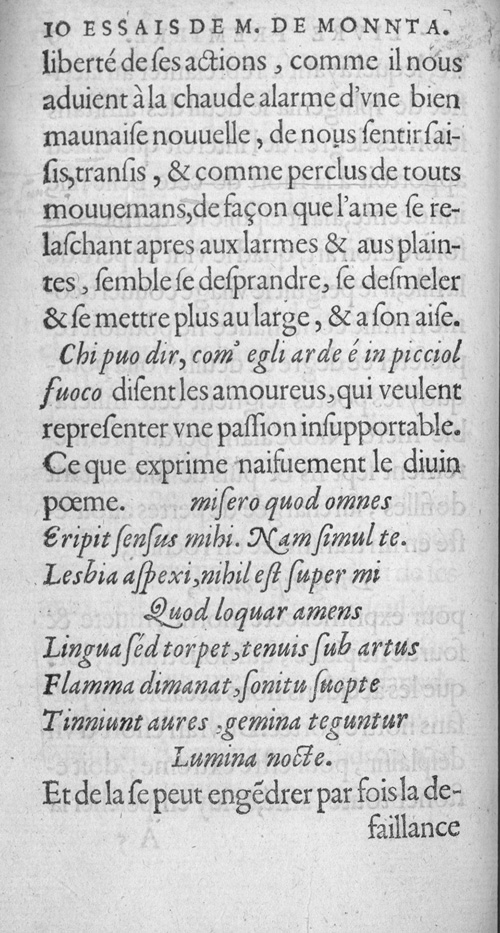 10 ESSAIS DE M. DE MONNTA.
liberté de ſes actions , comme il nous
aduient à la chaude alarme d'vne bien
maunaiſe nouuelle , de nous ſentir ſai-
ſis,tranſis , & comme perclus de touts
mouuemans,de façon que l'ame ſe re-
laſchant apres aux larmes & aus plain-
tes , ſemble ſe deſprandre, ſe deſmeler
& ſe mettre plus au large , & a ſon aiſe.
Chi puo dir, com' egli arde é in picciol
fuoco diſent les amoureus, qui veulent
repreſenter vne paſſion inſupportable.
Ce que exprime naifuement le diuin
pœme. miſero quod omnes
Eripit ſenſus mihi. Nam ſimul te.
Lesbia aſpexi,nihil eſt ſuper mi
Quod loquar amens
Lingua ſéd torpet,tenuis ſub artus
Flamma dimanat,ſonitu ſuopte
Tinniunt aures ,gemina teguntur
Lumina nocte.
Et de la ſe peut engēdrer par fois la de-
faillance